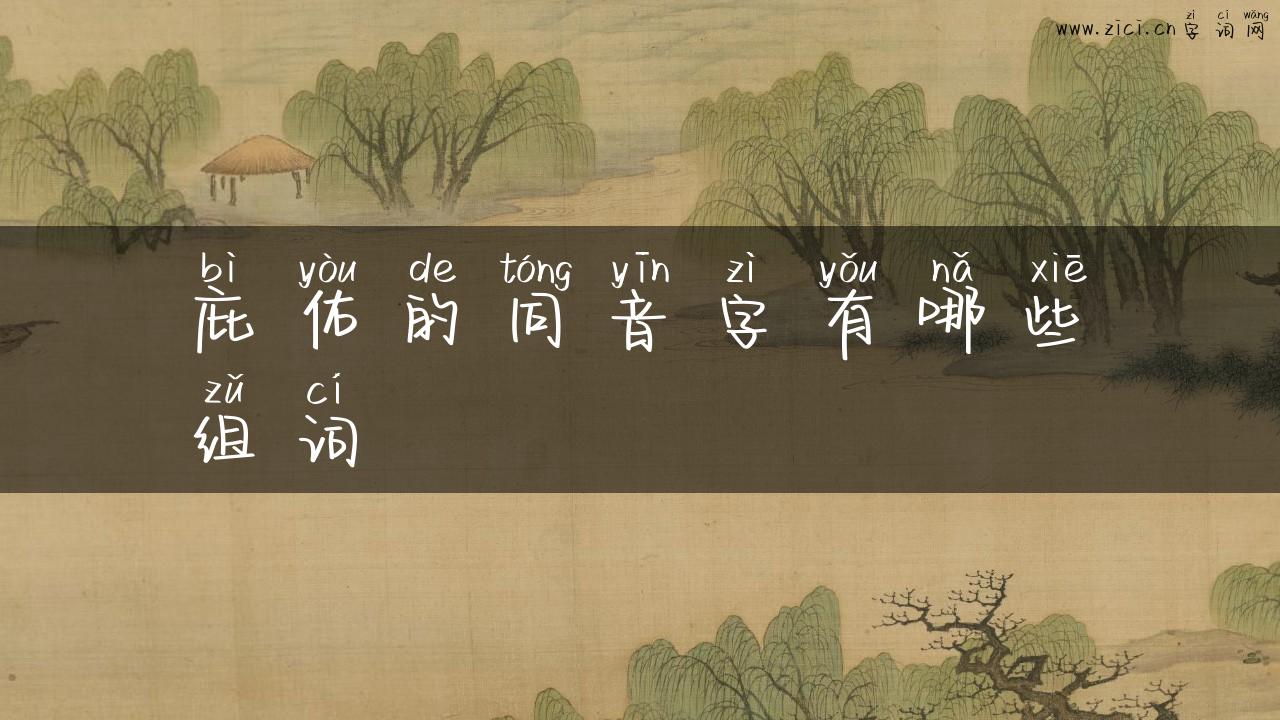 zì cí wǎng
www.zici.cn 字词网
bì yòu de tóng yīn zì yǒu nǎ xiē
庇佑的同音字有哪些
zǔ cí
组词